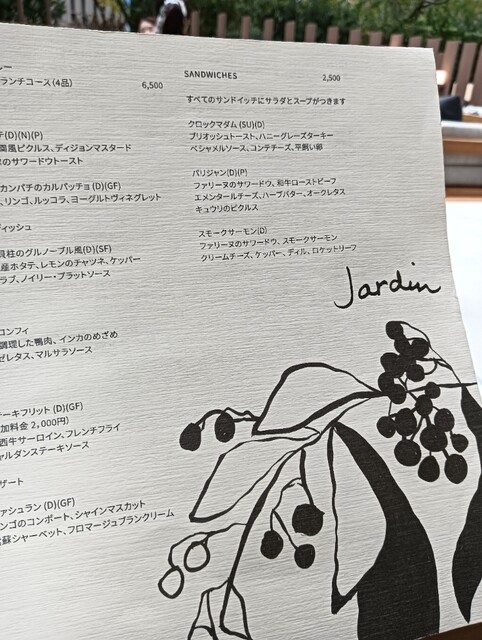 ランチコース (4品) 6,500
(D)(N)(P)
風ピクルス、ディジョンマスタード
のサワードウトースト
カンパチのカルパッチョ (D)(GF)
、リンゴ、ルッコラ、ヨーグルトヴィネグレット
ディッシュ
貝柱のグルノーブル風(D)(SF)
産ホタテ、レモンのチャツネ、ケッパー
ラブ、ノイリー・プラットソース
コンフィ
調理した鴨肉、インカのめざめ
ゼレタス、マルサラソース
ーキフリット (D)(GF)
加料金 2,000円)
西牛サーロイン、フレンチフライ
ャルダンステーキソース
ザート
ァシュラン (D)(GF)
ンゴのコンポート、シャインマスカット
蘇シャーベット、フロマージュブランクリーム
SANDWICHES 2,500
すべてのサンドイッチにサラダとスープがつきます
クロックマダム (SU)(D)
ブリオッシュトースト、ハニーグレーズターキー
ベシャメルソース、コンテチーズ、平飼い卵
パリジャン(D)(P)
ファリーヌのサワードウ、和牛ローストビーフ
エメンタールチーズ、ハーブバター、オークレタス
キュウリのピクルス
スモークサーモン(D)
ファリーヌのサワードウ、スモークサーモン
クリームチーズ、ケッパー、ディル、ロケットリーフ
Jardin